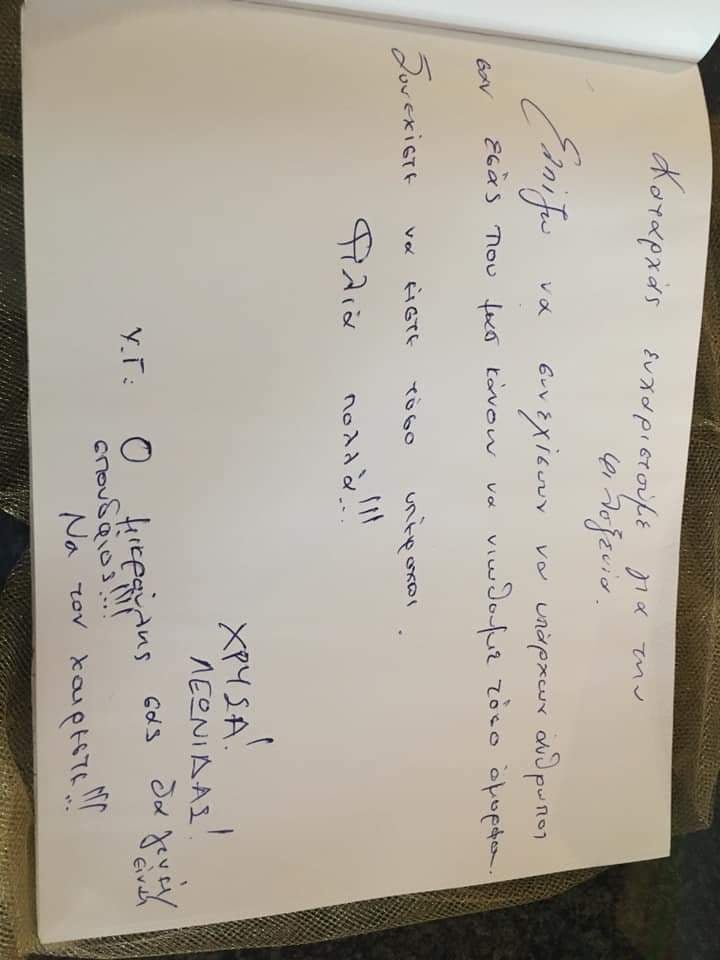 Καταρχάς ευχαριστούμε για την
φιλοξενία.
Ελπίζω να συνεχίσουν να υπάρχουν άνθρωποι
σαν εσάς που μας κάνουν να νιώθουμε τόσο όμορφα.
Συνεχίστε να είστε τόσο υπέροχοι.
Φιλιά πολλά!!!
ΧΡΥΣΑ!
ΛΕΩΝΙΔΑΣ!
Υ.Γ: Ο μικρούλης σας θα γενεί
είναι
σπουδαίος!!!
Να τον χαίρεστε!!!